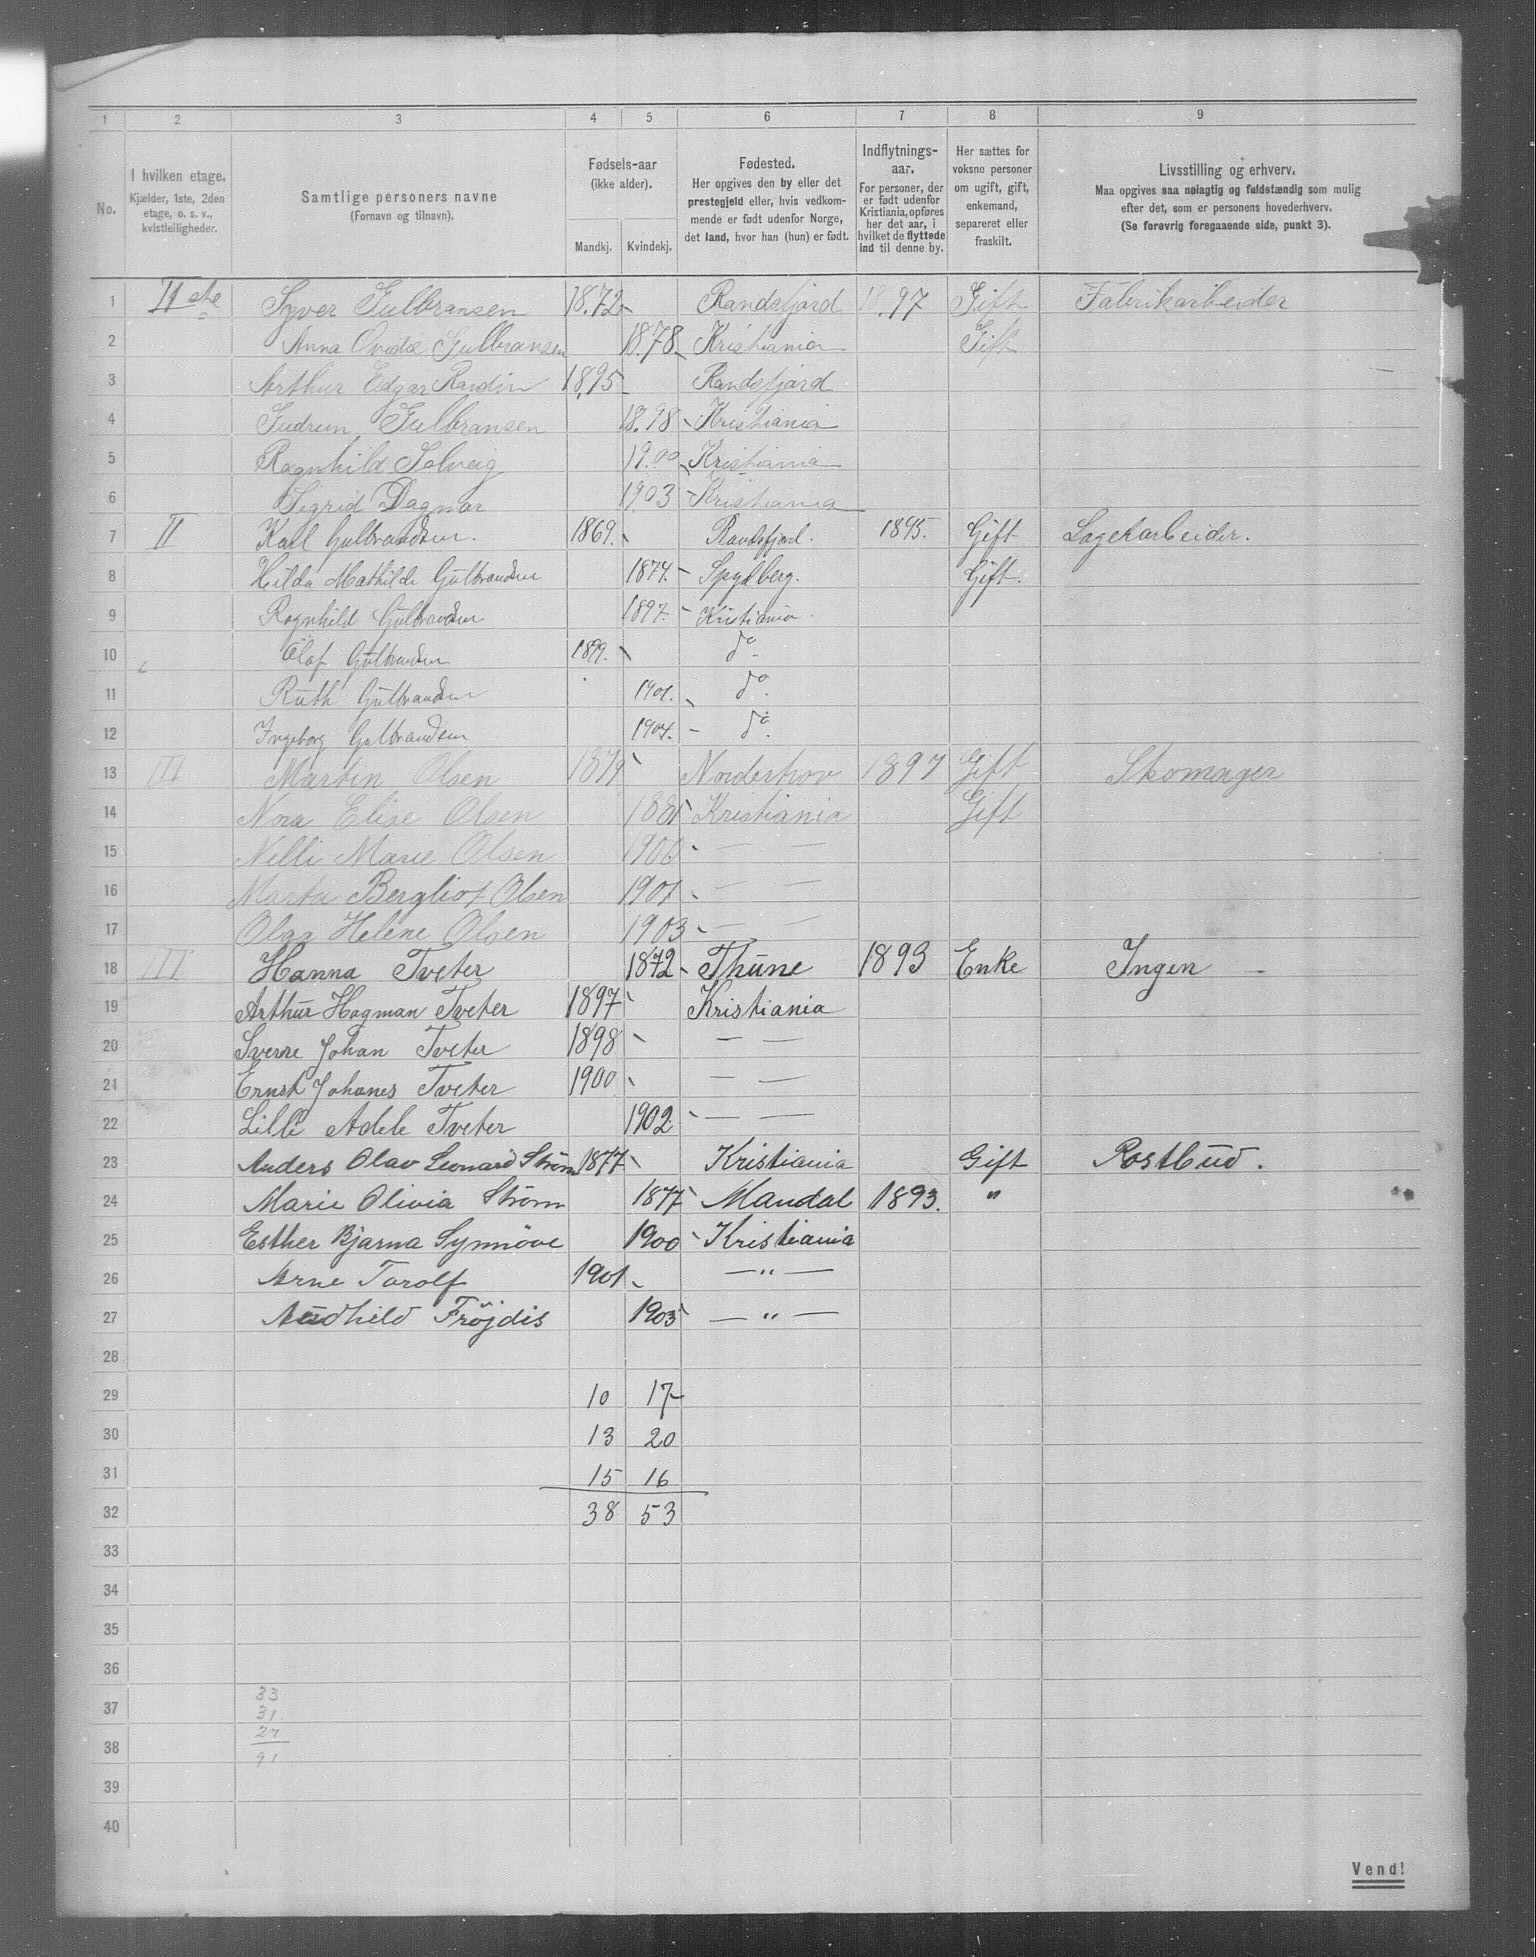 1 2 3 4 5 6 7 8 9
No.
I hvilken etage.
Kjælder, 1ste, 2den
etage, o. s. v.,
kvistleiligheder.
Samtlige personers navne
(Fornavn og tilnavn).
Fødsels-aar
(ikke alder).
Mandkj. Kvindekj.
Fødested.
Her opgives den by eller det
prestegjeld eller, hvis vedkom-
mende er født udenfor Norge,
det land, hvor han (hun) er født.
Indflytnings-
aar.
For personer, der
er født udenfor
Kristiania, opføres
her det aar, i
hvilket de flyttede
ind til denne by.
Her sættes for
voksne personer
om ugift, gift,
enkemand,
separeret eller
fraskilt.
Livsstilling og erhverv.
Maa opgives saa nøiagtig og fuldstændig som mulig
efter det, som er personens hovederhverv.
(Se forøvrig foregaaende side, punkt 3).
1 II ste Syver Gulbransen 18.72 Randsfjord 18.97 Gift Fabrikarbeider
2 Anna Ovidie Gulbransen 18.78 Kristiania Gift
3 Arthur Edgar Randin 18.95 Randsfjord
4 Gudrun Gulbransen 18.98 Kristiania
5 Ragnhild Solveig 19.00 Kristiania
6 Sigrid Dagmar 1903 Kristiania
7 II Karl Gulbrandsen. 1869. Randsfjord. 1895. Gift Lagerarbeider.
8 Hilda Mathilde Gulbrandsen 1874. Spydberg. Gift.
9 Ragnhild Gulbrandsen 1897. Kristiania.
10 Olaf Gulbrandsen 1899. do.
11 Ruth Gulbrandsen 1901. do.
12 Ingeborg Gulbrandsen 1904. do.
13 III Martin Olsen 1879 Norderhov 1897 Gift Skomager
14 Nora Elise Olsen 1881 Kristiania Gift
15 Nelli Marie Olsen 1900 — —
16 Marta Bergliot Olsen 1901 — —
17 Olga Helene Olsen 1903 — —
18 III Hanna Tveter 1872 Thune 1893 Enke Ingen —
19 Arthur Hagman Tveter 1897 Kristiania
20 Sverre Johan Tveter 1898 — —
21 Ernst Johanes Tveter 1900 — —
22 Lilli Adele Tveter 1902 — —
23 Anders Olav Leonard Strøm 1877 Kristiania Gift Postbud.
24 Marie Olivia Strøm 1877 Mandal 1893. "
25 Esther Bjarna Synnöve 1900 Kristiania
26 Arne Torolf 1901 — " —
27 Audhild Fröjdis 1903 — " —
28
29 10 17
30 13 20
31 15 16
32 38 53
33
34
35
36
33
37
31.
27
38
91
39
40
Vend!